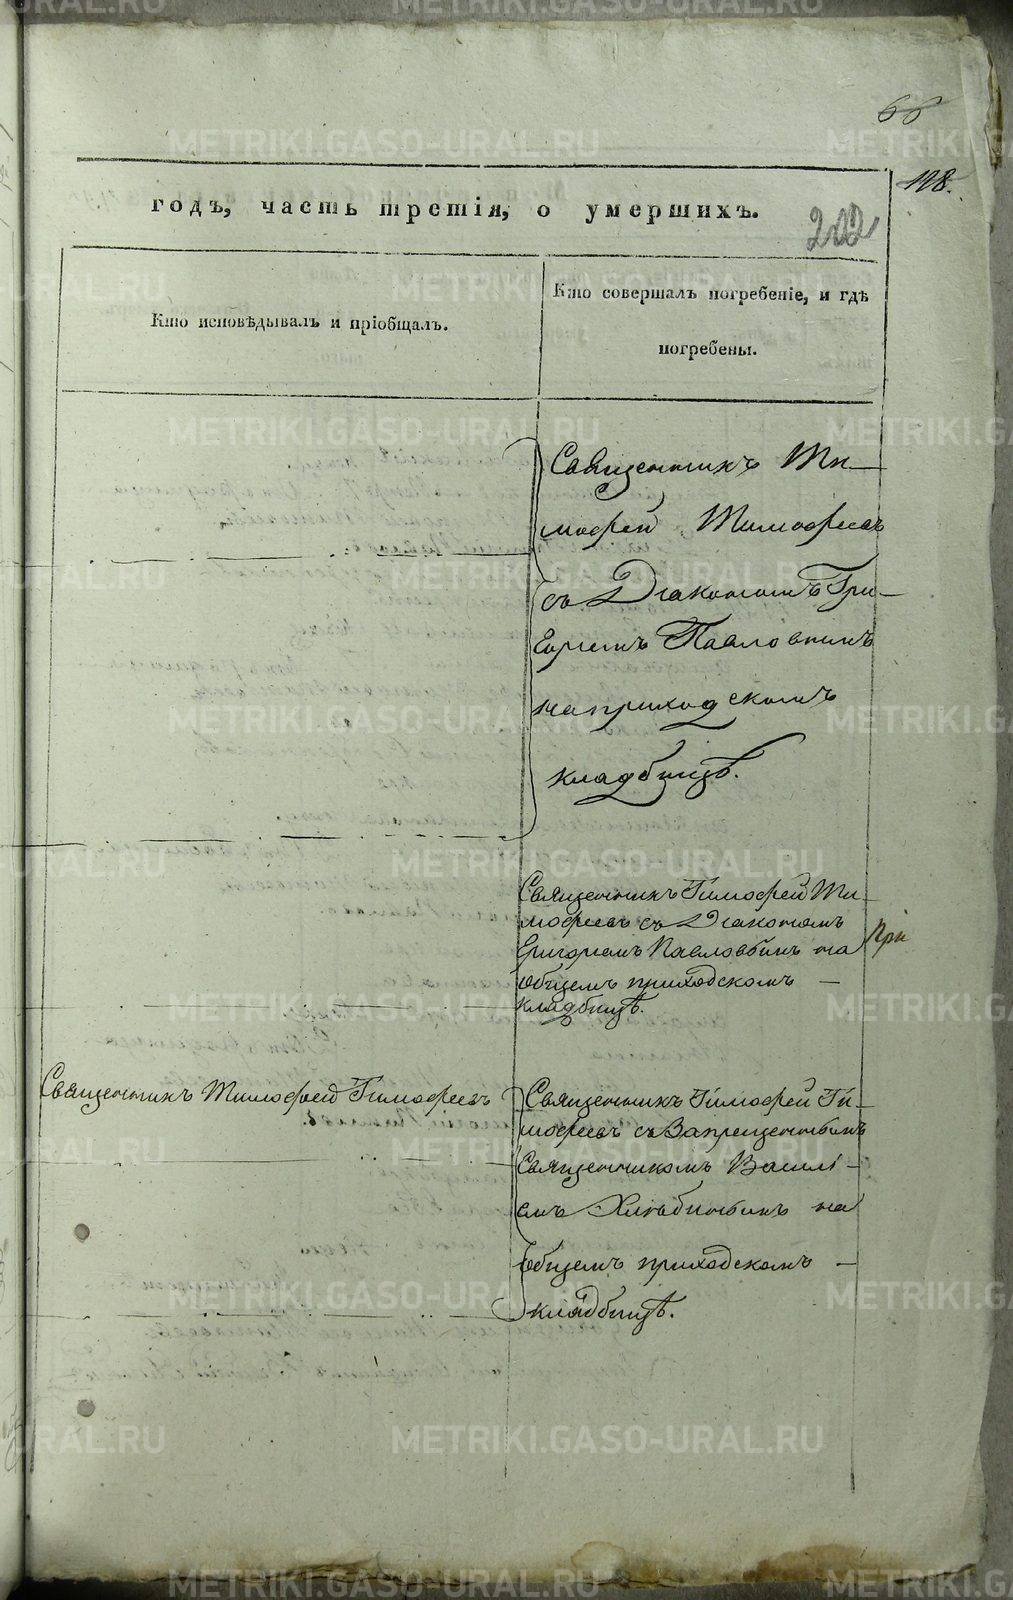 66
128.
годъ, часть третія, о умершихъ.
202
Кто исповѣдывалъ и пріобщалъ.
Кто совершалъ погребеніе, и гдѣ
погребены.
Священникъ Ти-
мофей Тимофеевъ
съ Діакономъ Гри-
горіемъ Павловымъ
на приходскомъ
кладбищѣ.
Священникъ Тимофей Ти-
мофеевъ съ Діакономъ
Григоріемъ Павловымъ на
общемъ приходскомъ
кладбищѣ.
При
Священникъ Тимофей Тимофеевъ
Священникъ Тимофей Ти-
мофеевъ съ Запрещеннымъ
Священникомъ Василі-
емъ Хлѣбинымъ на
общемъ приходскомъ
кладбищѣ.
METRIKI.GASO-URAL.RU